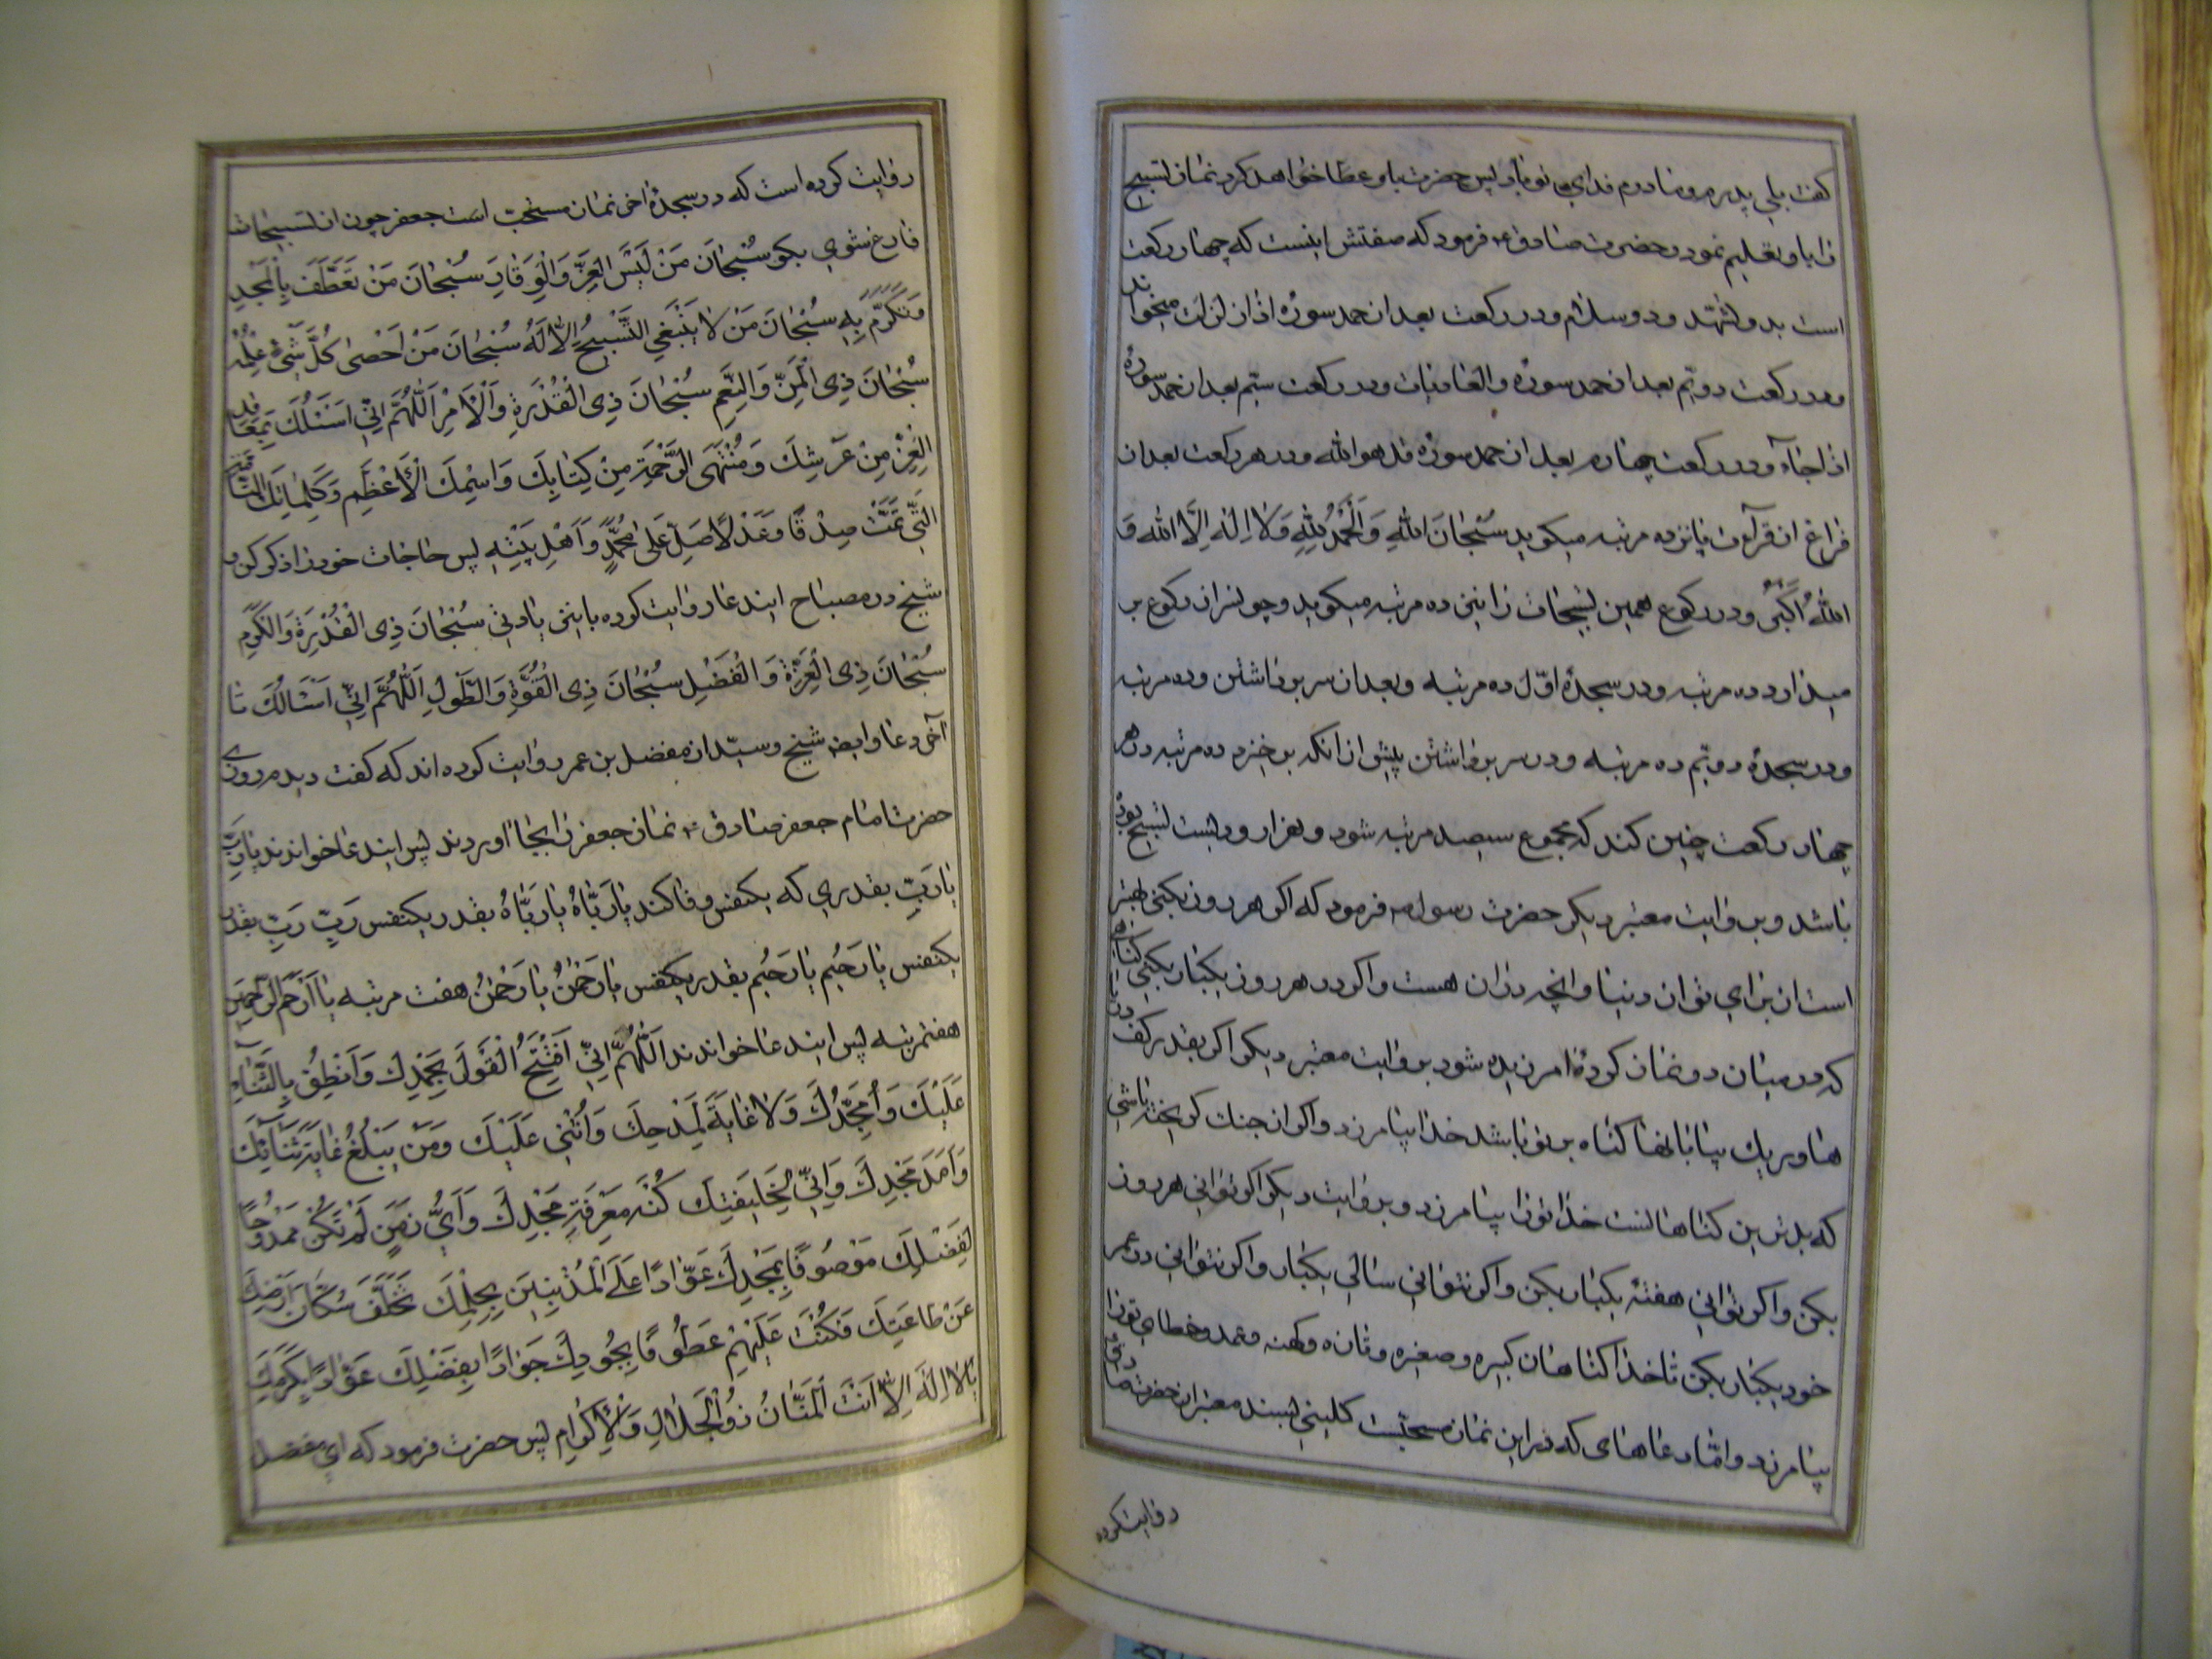 گفت بلی پدرم و مادرم فدای تو باد پس حضرت باو عطا خواهد کرد نماز تسبیح
را باو تعلیم نمود و حضرت صادق ع فرمود که صفتش اینست که چهار رکعت
است بدو تشهّد و دو سلام و در رکعت بعد از حمد سورهٔ اذا زلزلت میخواند
و در رکعت دویّم بعد از حمد سورهٔ والعادیات و در رکعت سیّم بعد از حمد سورهٔ
اذا جاء و در رکعت چهارم بعد از حمد سورهٔ قل هو الله و در هر رکعت بعد از
فراغ از قرآءت پانزده مرتبه میکوید سُبْحٰانَ اللّٰهِ وَ الْحَمْدُ لِلّٰهِ وَلٰا اِلٰهَ اِلَّا اللّٰه وَ
اللّٰهُ اَکْبَرُ و در رکوع همین تسبیحات را نیز ده مرتبه میکوید و چو سر از رکوع بر
میدارد ده مرتبه و در سجدهٔ اوّل ده مرتبه و بعد از سر برداشتن و ده مرتبه
و در سجدهٔ دویّم ده مرتبه و در سر برداشتن پیش از انکه برخیزد ده مرتبه در هر
چهار رکعت چنین کند که مجموع سیصد مرتبه شود و هزار و دویست تسبیح بوده
باشد و بروایت معتبر دیکر حضرت رسول ص فرمود که اکر هر روز بکنی بهتر
است از برای تو از دنیا و انچه در ان هست و اکر در هر دو روز یکبار بکنی کناه
که در میان دو نماز کردهٔ امرزیده شود بروایت معتبر دیکر اکر بقدر کف دریا
ها و ریک بیابانها کناه بر تو باشد خدا بیامرزد و اکر از جنک کریخته باشی
که بدترین کناهانست خدا تو را بیامرزد و بروایت دیکر اکر توانی هر روز
بکن و اکر نتوانی هفتهٔ یکبار بکن و اکر نتوانی سالی یکبار و اکر نتوانی در عمر
خود یکبار بکن تا خدا کناهان کبیره و صغیره و تازه و کهنه و عمد و خطای تو را
بیامرزد و امّا دعاهای که در این نماز مستحبّست کلینی بسند معتبر از حضرت صادق
روایت کرده
روایت کرده است که در سجدهٔ اخر نماز مستحبّ است جعفر چون از تسبیحات
فارغ شوی بکو سُبْحٰانَ مَنْ لَبِسَ الْعِزَّ وَالْوَقٰارَ سُبْحٰانَ مَنْ تَعَطَّفَ بِالْمَجْدِ
وَ تَکَرَّمَ بِهِ سُبْحٰانَ مَنْ لٰا یَنْبَغِی التَّسْبیحُ اِلّٰا لَهُ سُبْحٰانَ مَنْ اَحْصٰی کُلَّ شَیْءٍ عِلْمُهُ
سُبْحٰانَ ذِی الْمَنِّ وَ النِّعَمِ سُبْحٰانَ ذِی الْقُدْرَةِ وَ الْاَمْرِ اَللّٰهُمَّ اِنّی اَسْئَلُکَ بِمَعٰاقِدِ
الْعِزِّ مِنْ عَرْشِکَ وَ مُنْتَهَی الرَّحْمَةِ مِنْ کِتٰابِکَ وَ اسْمِکَ الْاَعْظَمِ وَ کَلِمٰاتِکَ التّٰامَّةِ
الَّتی تَمَّتْ صِدْقًا وَ عَدْلًا صَلِّ عَلٰی مُحَمَّدٍ وَ اَهْلِ بَیْتِهِ پس حاجات خود را ذکر کن و
شیخ در مصباح ایندعا روایت کرده با اینزیادتی سُبْحٰانَ ذِی الْقُدْرَةِ وَ الْکَرَمِ
سُبْحٰانَ ذِی الْعِزَّةِ وَ الْفَضْلِ سُبْحٰانَ ذِی الْقُوَّةِ وَ الطَّوْلِ اَللّٰهُمَّ اِنّی اَسْالُکَ تا
آخر دعا و ایضا شیخ و سیّد از مفضل بن عمر روایت کرده اند که کفت دیدم روزی
حضرت امام جعفر صادق ع نماز جعفر را بجا اوردند پس ایندعا خواندند یا رَبِّ
یا رَبِّ بقدری که یکنفس وفا کند یا رَبّٰاهُ یا رَبّٰاهُ بقدر یکنفس رَبِّ رَبِّ بقدر
یکنفس یا رَحیُم یا رَحیُم بقدر یکنفس یا رَحْمٰنُ یا رَحْمٰنُ هفت مرتبه یا اَرْحَمَ الرّٰحِمینَ
هفتمرتبه پس ایندعا خواندند اَللّٰهُمَّ اِنّی اَفْتَتِحُ الْقَوْلَ بِحَمْدِکَ وَ اَنْطِقُ بِالثَّنٰاءِ
عَلَیْکَ وَ اُمَجِّدُکَ وَ لٰا غٰایَةَ لِمَدْحِکَ وَ اُثْنی عَلَیْکَ وَ مَنْ یَبْلُغُ غٰایَةَ ثَنٰائِکَ
وَ اَمَدَ مَجْدِکَ وَ اَنّی لِخَلیقَتِکَ کُنْهَ مَعْرِفَةِ مَجْدِکَ وَ اَیُّ زَمَنٍ لَمْ تَکُنْ مَمْدُوحًا
لِفَضْلِکَ مَوْصُوفًا بِمَجْدِکَ عَوّٰادًا عَلَی الْمُذْنِبینَ بِحِلْمِکَ تَخَلَّفَ سُکّٰانُ اَرْضِکَ
عَنْ طٰاعَتِکَ فَکُنْتَ عَلَیْهِمْ عَطُوفًا بِجُودِکَ جَوٰادًا بِفَضْلِکَ عَوّٰادًا بِکَرَمِکَ
یا لٰا اِلٰهَ اِلّٰا اَنْتَ الْمَنّٰانُ ذُو الْجَلٰالِ وَ الْاِکْرٰامِ پس حضرت فرمود که ای مفضل